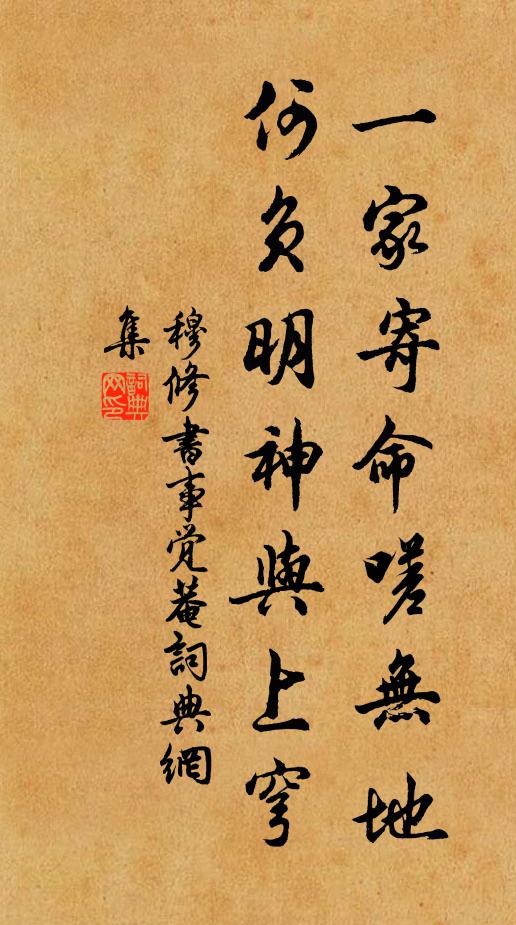 一家寄命嗟無地
何負明神與上穹
穆修書事覚菴詞典網
集
詞典网印